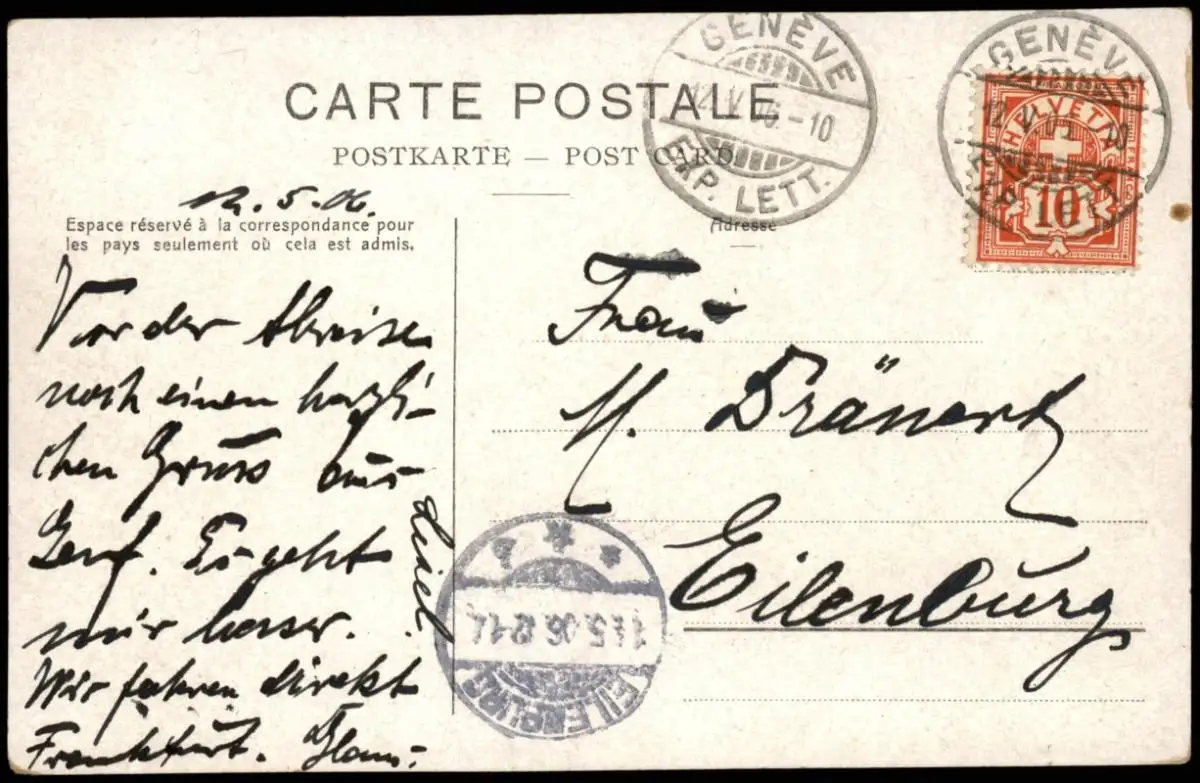 CARTE POSTALE
POSTKARTE — POST CARD
Espace réservé à la correspondance pour
les pays seulement où cela est admis.
Adresse
12.5.06.
Vor der Abreise
noch einen herzli-
chen Gruss aus
Genf. Es geht
mir besser.
Wir fahren direkt
Frankfurt.
Frau
M. Dränert
Eilenburg
GENÈVE
12.V.06.-10
EXP. LETT.
GENÈVE
12.V.
EXP. LETT.
HELVETIA
10
EILENBURG
5.06.12-1